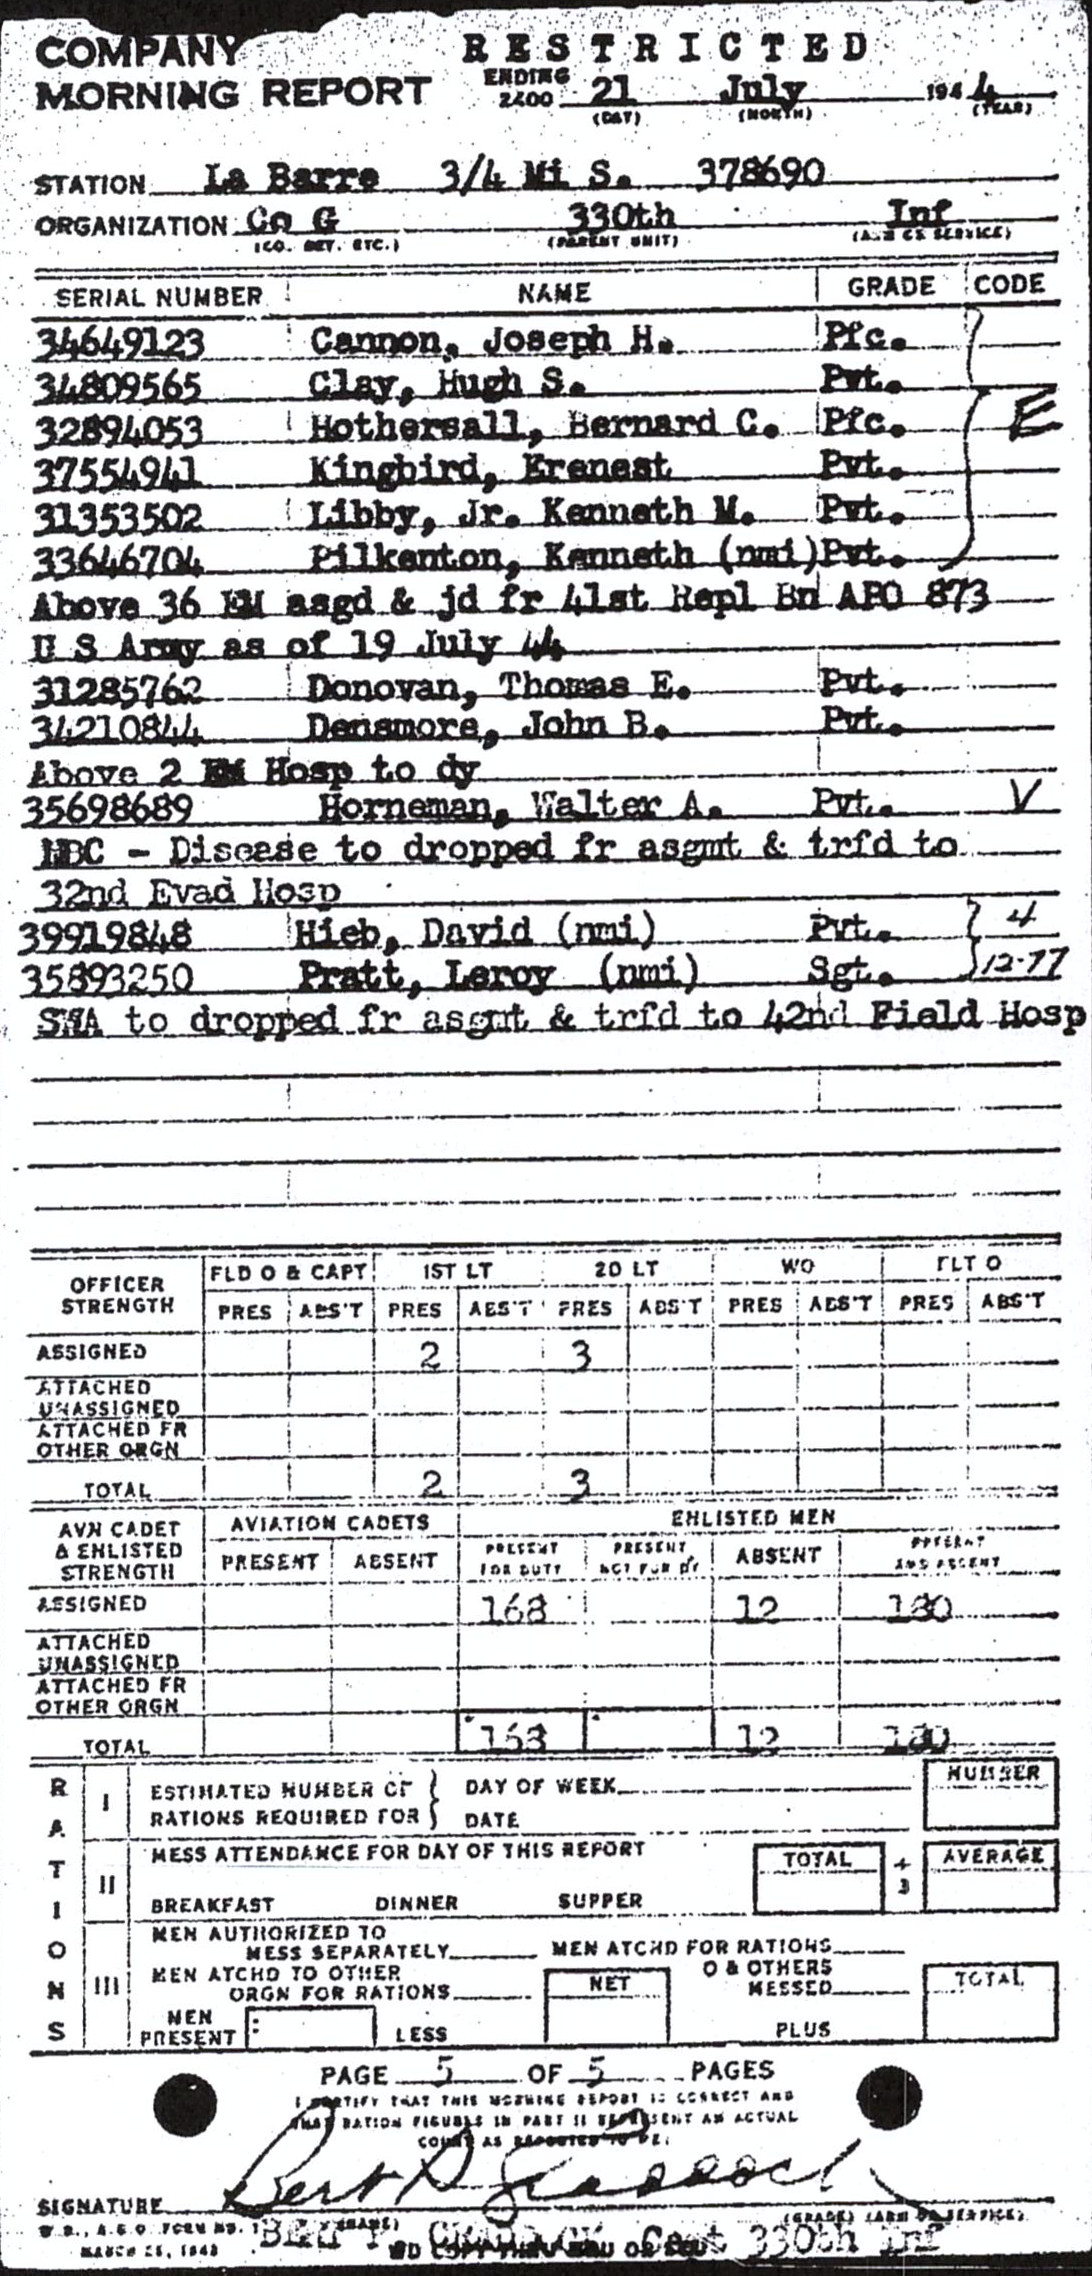 COMPANY RESTRICTED
MORNING REPORT ENDING 2400 21 July 1944
(DAY) (MONTH) (YEAR)
STATION La Barre 3/4 Mi S. 378690
ORGANIZATION Co G 330th Inf
(CO. DET. ETC.) (PARENT UNIT) (ARM OR SERVICE)
SERIAL NUMBER NAME GRADE CODE
34649123 Cannon, Joseph H. Pfc.
34809565 Clay, Hugh S. Pvt.
32894053 Hothersall, Bernard C. Pfc. E
37554941 Kingbird, Erenest Pvt.
31353502 Libby, Jr. Kenneth M. Pvt.
33646704 Pilkenton, Kenneth (nmi) Pvt.
Above 36 EM asgd & jd fr 41st Repl Bn APO 873
U S Army as of 19 July 44
31285762 Donovan, Thomas E. Pvt.
34210844 Densmore, John B. Pvt.
Above 2 EM Hosp to dy
35698689 Horneman, Walter A. Pvt. V
NBC - Disease to dropped fr asgmt & trfd to
32nd Evad Hosp
39919848 Hieb, David (nmi) Pvt. 4
35893250 Pratt, Leroy (nmi) Sgt. 12-77
SWA to dropped fr asgmt & trfd to 42nd Field Hosp
OFFICER STRENGTH FLD O & CAPT 1ST LT 2D LT WO FLT O
PRES ABS'T PRES ABS'T PRES ABS'T PRES ABS'T PRES ABS'T
ASSIGNED 2 3
ATTACHED UNASSIGNED
ATTACHED FR OTHER ORGN
TOTAL 2 3
AVN CADET & ENLISTED STRENGTH AVIATION CADETS ENLISTED MEN
PRESENT ABSENT PRESENT FOR DUTY PRESENT NOT FOR DY ABSENT PRESENT AND ABSENT
ASSIGNED 168 12 180
ATTACHED UNASSIGNED
ATTACHED FR OTHER ORGN
TOTAL 168 12 180
RATIONS
I ESTIMATED NUMBER OF RATIONS REQUIRED FOR } DAY OF WEEK NUMBER
DATE
II MESS ATTENDANCE FOR DAY OF THIS REPORT TOTAL ÷ 3 AVERAGE
BREAKFAST DINNER SUPPER
III MEN AUTHORIZED TO MESS SEPARATELY MEN ATCHD FOR RATIONS
MEN ATCHD TO OTHER ORGN FOR RATIONS NET O & OTHERS MESSED TOTAL
MEN PRESENT LESS PLUS
PAGE 5 OF 5 PAGES
I CERTIFY THAT THIS MORNING REPORT IS CORRECT AND
THAT RATION FIGURES IN PART II REPRESENT AN ACTUAL
COUNT AS REPORTED TO ME.
SIGNATURE Bert
(NAME) (GRADE) (ARM OR SERVICE)
W.D., A.G.O. FORM NO. 1
MARCH 25, 1943
Capt 330th Inf